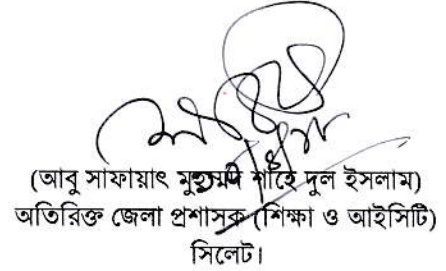 (আবু সাফায়াৎ মুহম্মদ শাহে দুল ইসলাম)
অতিরিক্ত জেলা প্রশাসক (শিক্ষা ও আইসিটি)
সিলেট।